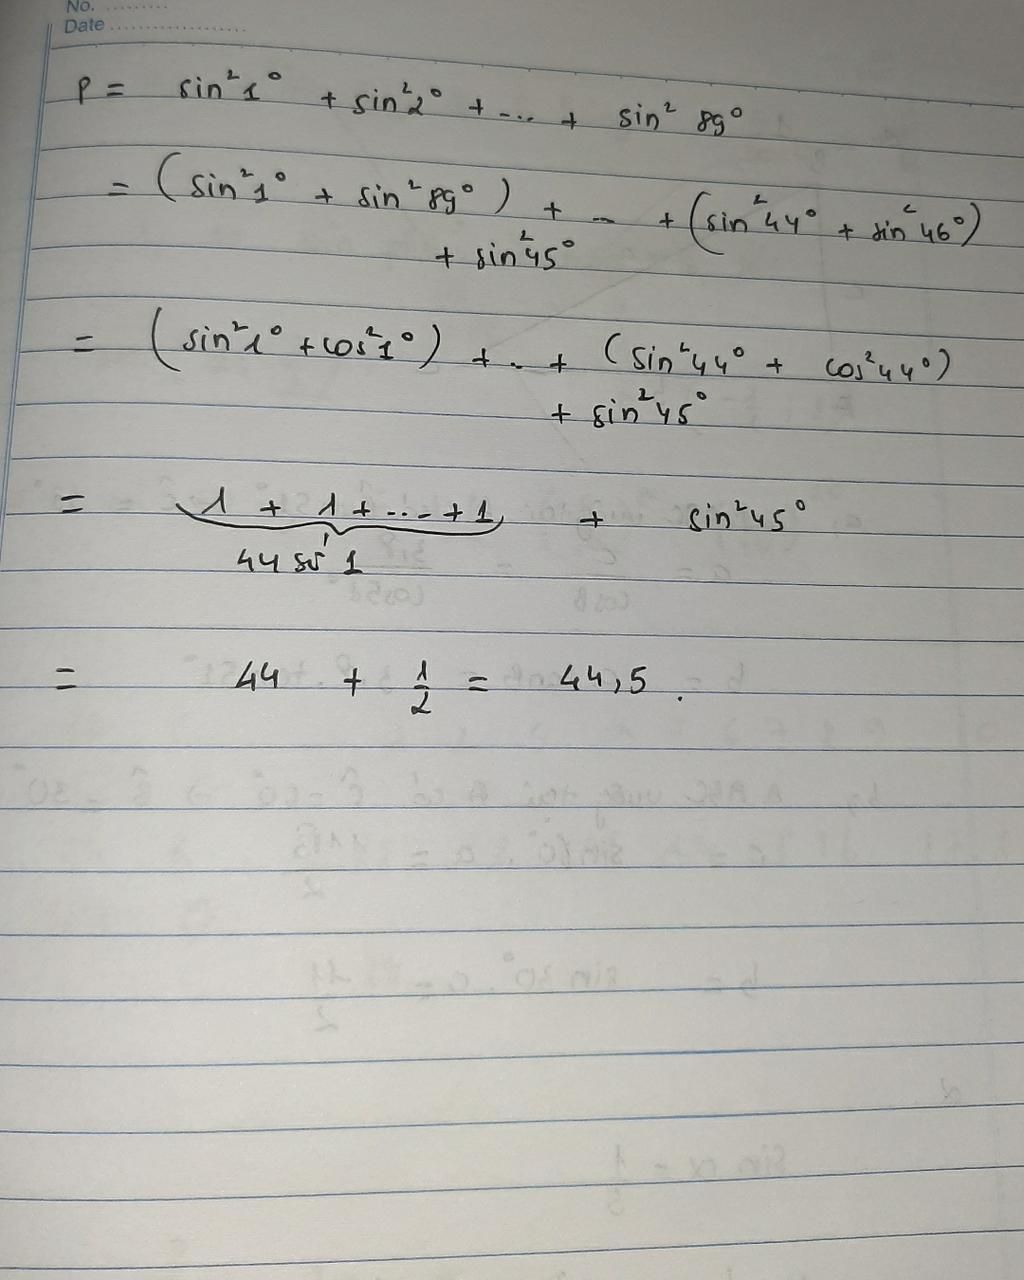 No. .........
Date ...................
P = sin²1° + sin²2° + ... + sin² 89°
= (sin²1° + sin²89°) + ... + (sin²44° + sin²46°)
+ sin²45°
= (sin²1° + cos²1°) + .. + (sin²44° + cos²44°)
+ sin²45°
= 1 + 1 + ... + 1 + sin²45°
44 số 1
= 44 + 1/2 = 44,5.